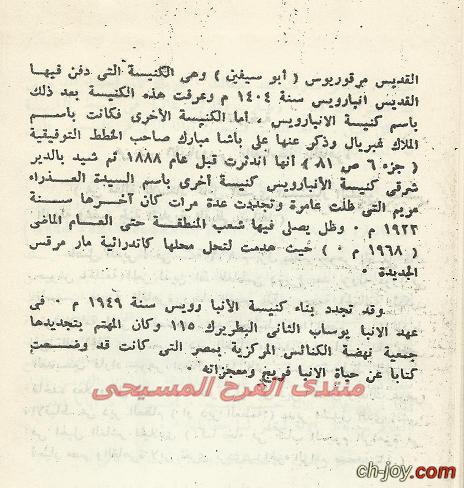 القديس مرقوريوس ( أبو سيفين ) وهى الكنيسة التى دفن فيها
القديس انبارويس سنة ١٤٠٤ م وعرفت هذه الكنيسة بعد ذلك
باسم كنيسة الانبارويس ، اما الكنيسة الأخرى فكانت باسم
الملاك غبريال وذكر عنها على باشا مبارك صاحب الخطط التوفيقية
( جزء ٦ ص ٨١ ) أنها اندثرت قبل عام ١٨٨٨ ثم شيد بالدير
شرقى كنيسة الأنبارويس كنيسة أخرى باسم السيدة العذراء
مريم التى ظلت عامرة وتجددت عدة مرات كان آخرها سنة
١٩٢٣ م ٠ وظل يصلى فيها شعب المنطقة حتى العام الماضى
( ١٩٦٨ م ٠ ) حيث هدمت لتحل محلها كاتدرائية مار مرقس
الجديدة ٠
وقد تجدد بناء كنيسة الأنبا رويس سنة ١٩٤٩ م ٠ فى
عهد الانبا يوساب الثانى البطريرك ١١٥ وكان المهتم بتجديدها
جمعية نهضة الكنائس المركزية بمصر التى كانت قد وضعت
كتابا عن حياة الانبا فريج ومعجزاته ٠
منتدى الفرح المسيحى
ch-joy.com